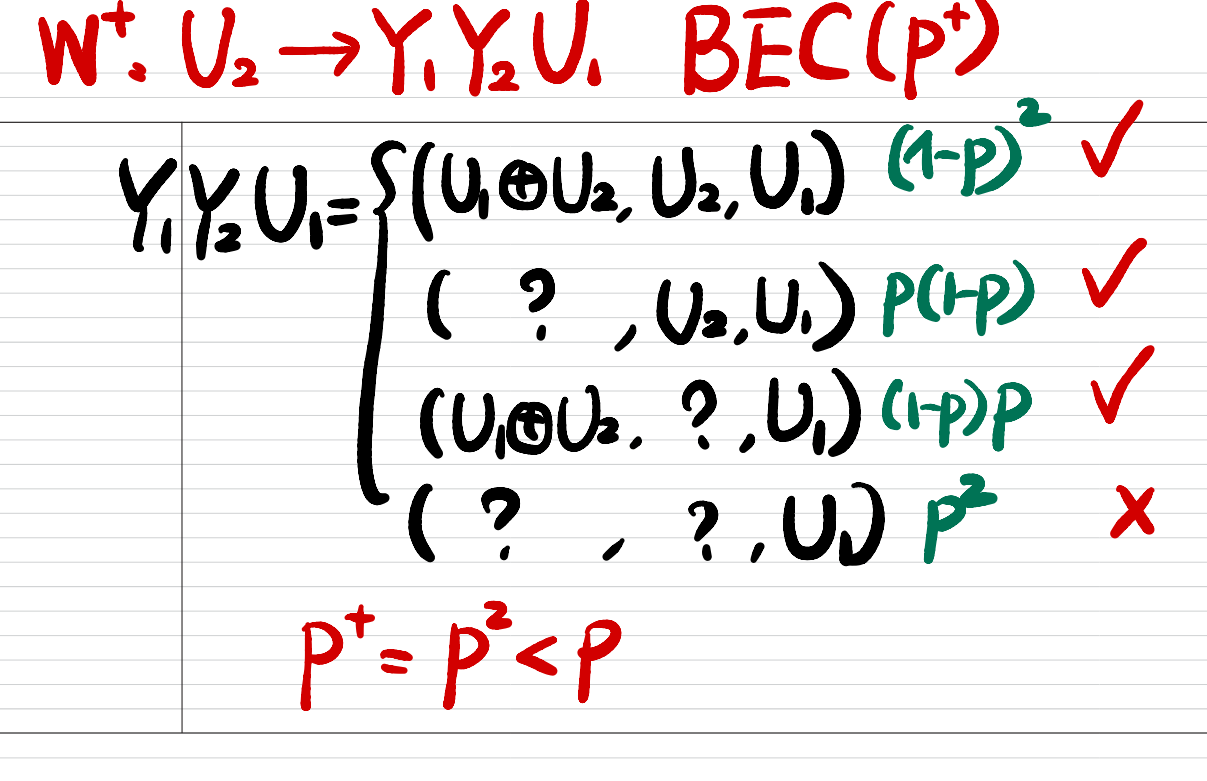 W⁺: U₂ → Y₁Y₂U₁ BEC(p⁺)
Y₁Y₂U₁ = { (U₁⊕U₂, U₂, U₁) (1-p)² ✓
( ? , U₂, U₁) p(1-p) ✓
(U₁⊕U₂, ?, U₁) (1-p)p ✓
( ? , ?, U₁) p² ✗
p⁺ = p² < p